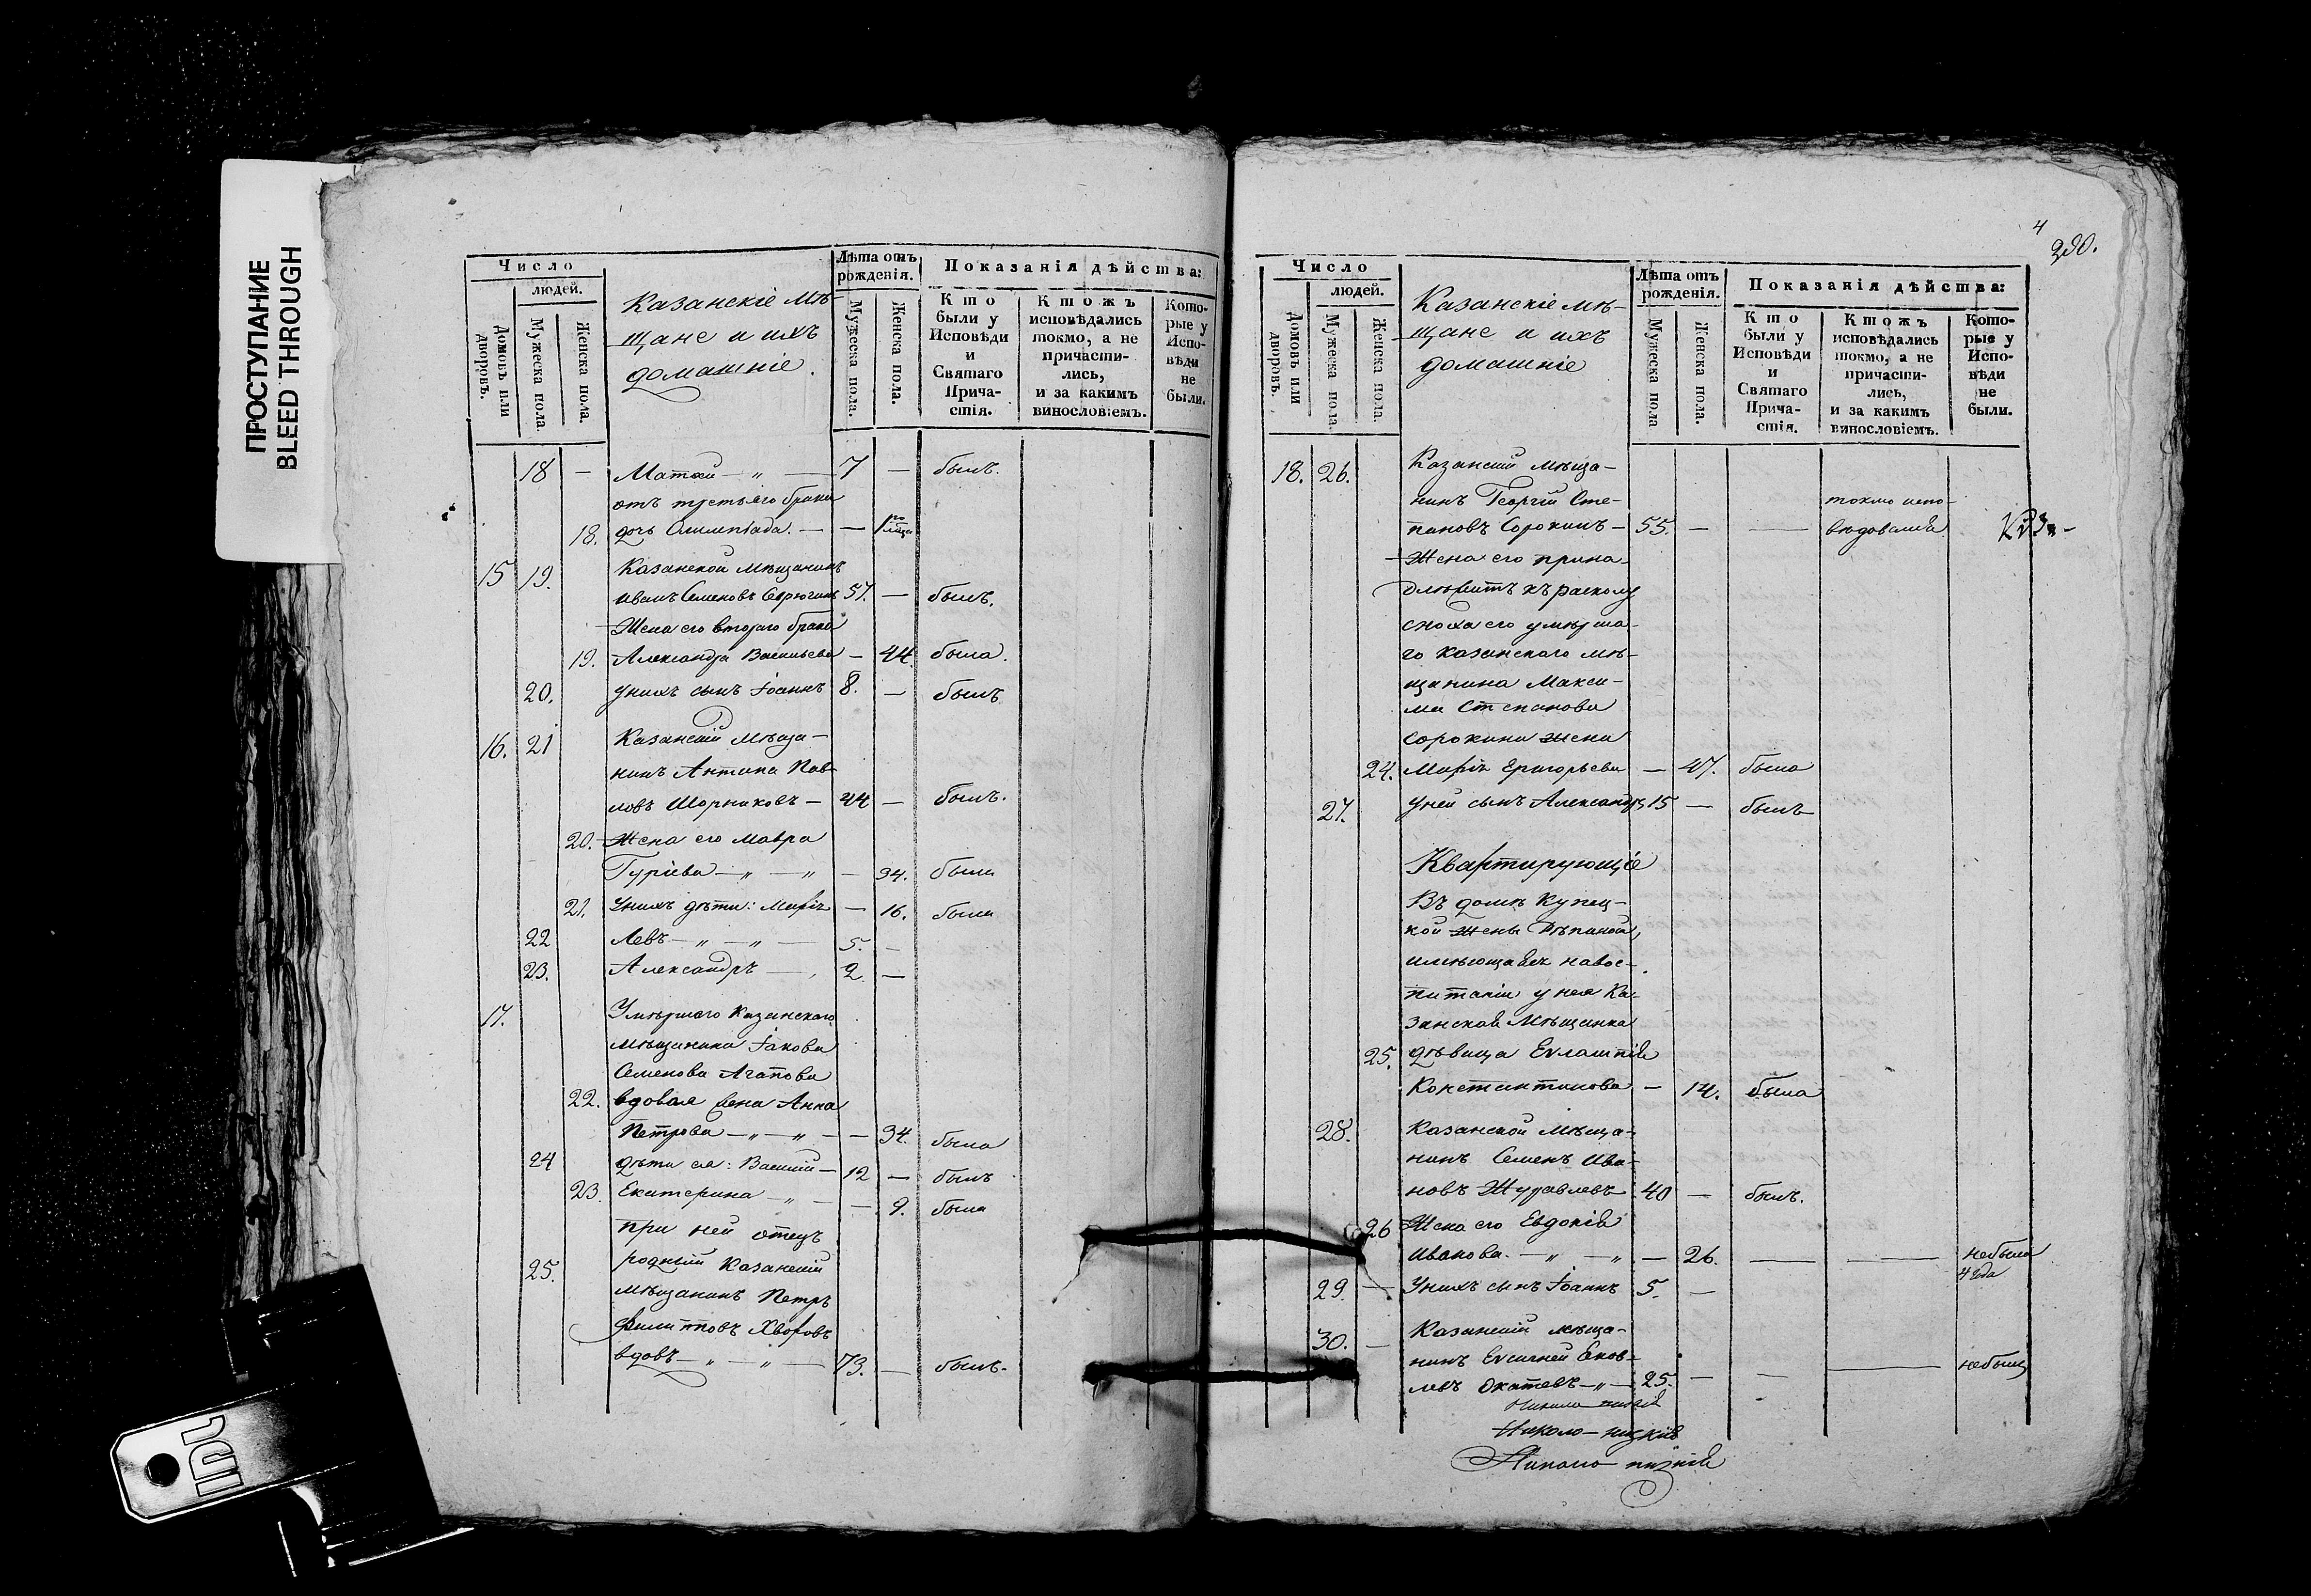 ПРОСТУПАНИЕ
BLEED THROUGH
Число
людей.
Домовъ или дворовъ.
Мужеска пола.
Женска пола.
Казанскіе мѣ-
щане и ихъ
домашніе.
Лѣта отъ рожденія.
Мужеска пола.
Женска пола.
Показанія дѣйства:
Кто были у Исповѣди и Святаго Причастія.
Ктожъ исповѣдались токмо, а не причасти-лись, и за какимъ винословіемъ.
Кото-рые у Испо-вѣди не были.
18 — Матѳей — „ — 7 — былъ.
отъ третьяго брака
18. дочь Олимпіада. — —
Казанской мѣщанинъ
15 19. Иванъ Семеновъ 57. — былъ.
Жена его втораго брака
19. Александра Васильева — 44. была.
20. у нихъ сынъ Іоаннъ 8. — былъ
16. 21 Казанскій мѣща-
нинъ Антипа Пав-
ловъ Шорниковъ — 44 — былъ.
20. Жена его Мавра
Гуріева — „ — „ — 34. была
21. У нихъ дѣти: Марія — 16. была
22 Левъ — „ — „ — 5. —
23. Александръ — 2 —
17. Умершаго Казанскаго
мѣщанина Іакова
Семенова Агапова
22. вдовая жена Анна
Петрова — „ — „ — — 34. была
24 дѣти ея: Василій — 12 — былъ
23. Екатерина — „ — — 9. была
при ней отецъ
25. родный Казанскій
мѣщанинъ Петръ
Филипповъ Хворовъ
вдовъ — „ — „ — 73. — былъ.
4
290.
Число
людей.
Домовъ или дворовъ.
Мужеска пола
Женска пола.
Казанскіе мѣ-
щане и ихъ
домашніе
Лѣта отъ рожденія.
Мужеска пола
Женска пола.
Показанія дѣйства:
Кто были у Исповѣди и Святаго Прича-стія.
Ктожъ исповѣдались токмо, а не причасти-лись, и за какимъ винословіемъ.
Кото-рые у Испо-вѣди не были.
18. 26. Казанскій мѣща-
нинъ Георгій Сте- токмо испо-
пановъ Сорокинъ — 55. — — вѣдовался
Жена его прина-
длежитъ къ расколу
сноха его умерша-
го казанскаго мѣ-
щанина Макси-
ма Степанова
Сорокина жена
24. Марія Григорьева — 47. была
27. у ней сынъ Александръ 15 — былъ
Квартирующіе
Въ домѣ купец-
кой жены
имѣющаяся на вос-
питаніи у нея Ка-
занская мѣщанка
25. дѣвица Евлампія
Константинова — 14. была
28. Казанской мѣща-
нинъ Семенъ Ива-
новъ Журавлевъ 40 — былъ.
26 Жена его Евдокія
Иванова. — „ — „ — 26. — — не была
4 года
29. — У нихъ сынъ Іоаннъ 5. —
30. — Казанскій мѣща-
нинъ Евсигней Яков-
левъ Окатевъ — „ — 25. — — — не былъ
Николо-низкій
Николо-низкій